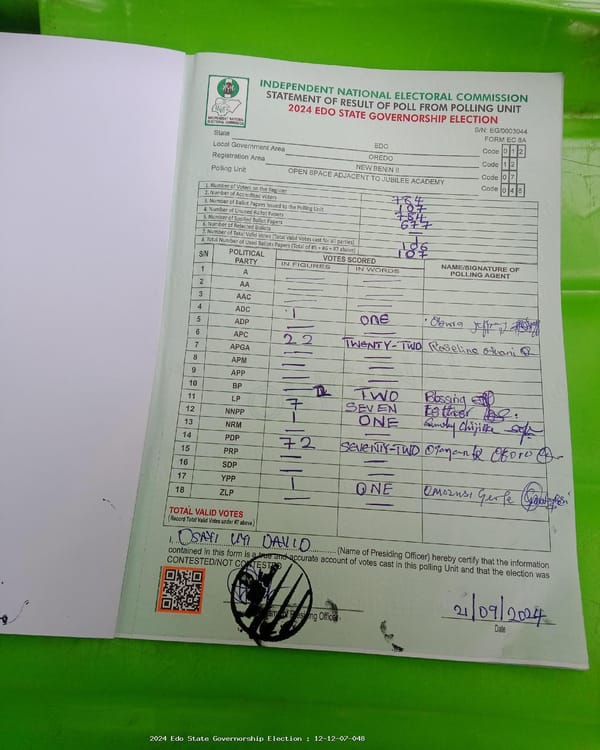 INDEPENDENT NATIONAL ELECTORAL COMMISSION
STATEMENT OF RESULT OF POLL FROM POLLING UNIT
2024 EDO STATE GOVERNORSHIP ELECTION
INDEPENDENT NATIONAL ELECTORAL COMMISSION
S/N: EG/0003044
FORM EC 8A
State EDO Code 0 1 2
Local Government Area OREDO Code 1 2
Registration Area NEW BENIN II Code 0 7
Polling Unit OPEN SPACE ADJACENT TO JUBILEE ACADEMY Code 0 4 8
1. Number of Voters on the Register 784
2. Number of Accredited Voters 107
3. Number of Ballot Papers Issued to the Polling Unit 784
4. Number of Unused Ballot Papers 677
5. Number of Spoiled Ballot Papers —
6. Number of Rejected Ballots
7. Number of Total Valid Votes (Total Valid Votes cast for all parties) 106
8. Total Number of Used Ballots Papers (Total of #5 + #6 + #7 above) 107
S/N POLITICAL PARTY VOTES SCORED NAME/SIGNATURE OF POLLING AGENT
IN FIGURES IN WORDS
1 A — —
2 AA — —
3 AAC — —
4 ADC — —
5 ADP 1 ONE
6 APC 22 TWENTY-TWO
7 APGA — —
8 APM — —
9 APP — —
10 BP — —
11 LP TWO Blessing
12 NNPP 7 SEVEN
13 NRM 1 ONE
14 PDP 72 SEVENTY-TWO
15 PRP — —
16 SDP — —
17 YPP — —
18 ZLP 1 ONE
TOTAL VALID VOTES
(Record Total Valid Votes under #7 above)
I, OSAYI UYI DAVID (Name of Presiding Officer) hereby certify that the information
contained in this form is a true and accurate account of votes cast in this polling Unit and that the election was
CONTESTED/NOT CONTESTED
Presiding Officer
21/09/2024
Date
2024 Edo State Governorship Election : 12-12-07-048